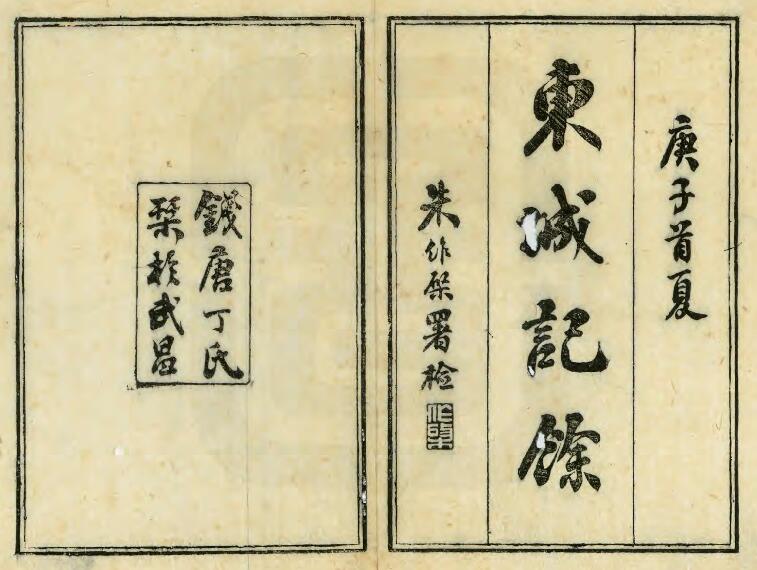 庚子首夏
東城記餘
朱作榮署檢
作榮
錢唐丁氏
栞於武昌